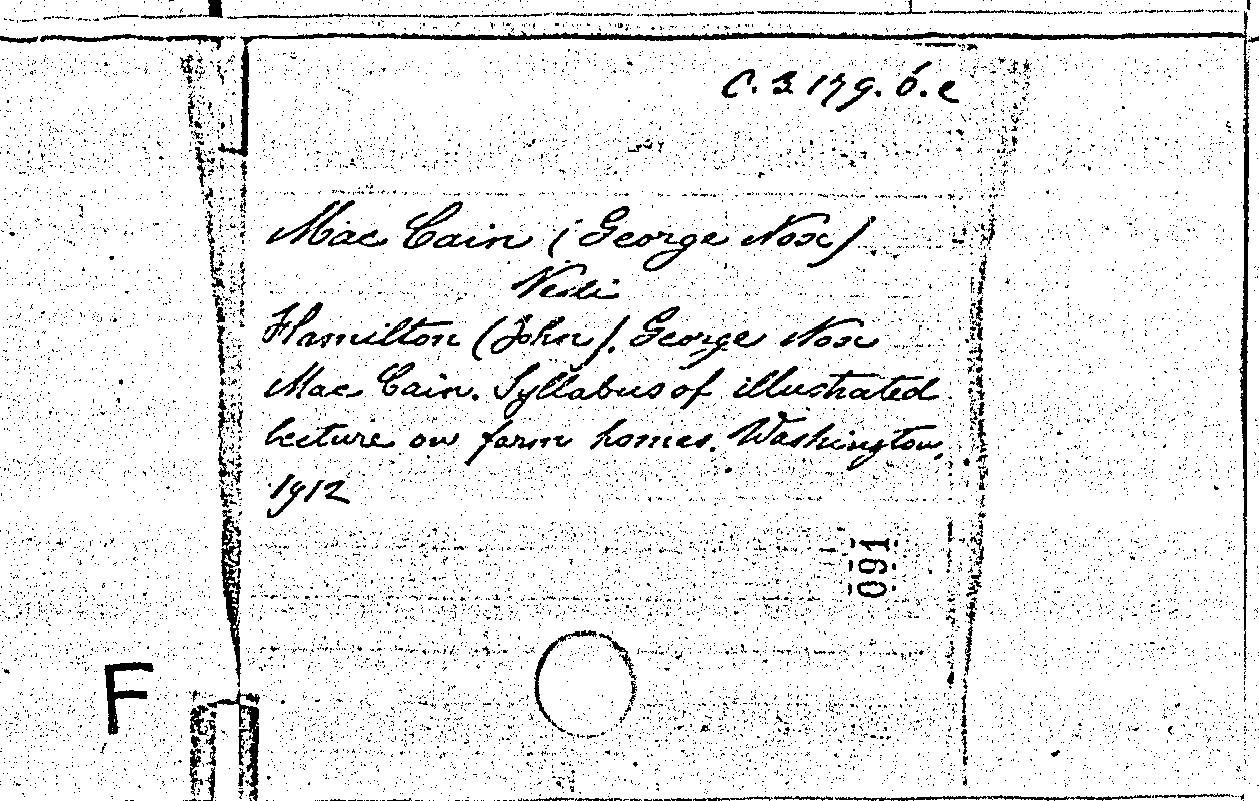 C. 3. 179. 6. e
Mac Cain (George Nox)
Vedi
Hamilton (John). George Nox
Mac Cain. Syllabus of illustrated
lecture on farm homes. Washington,
1912
091
F